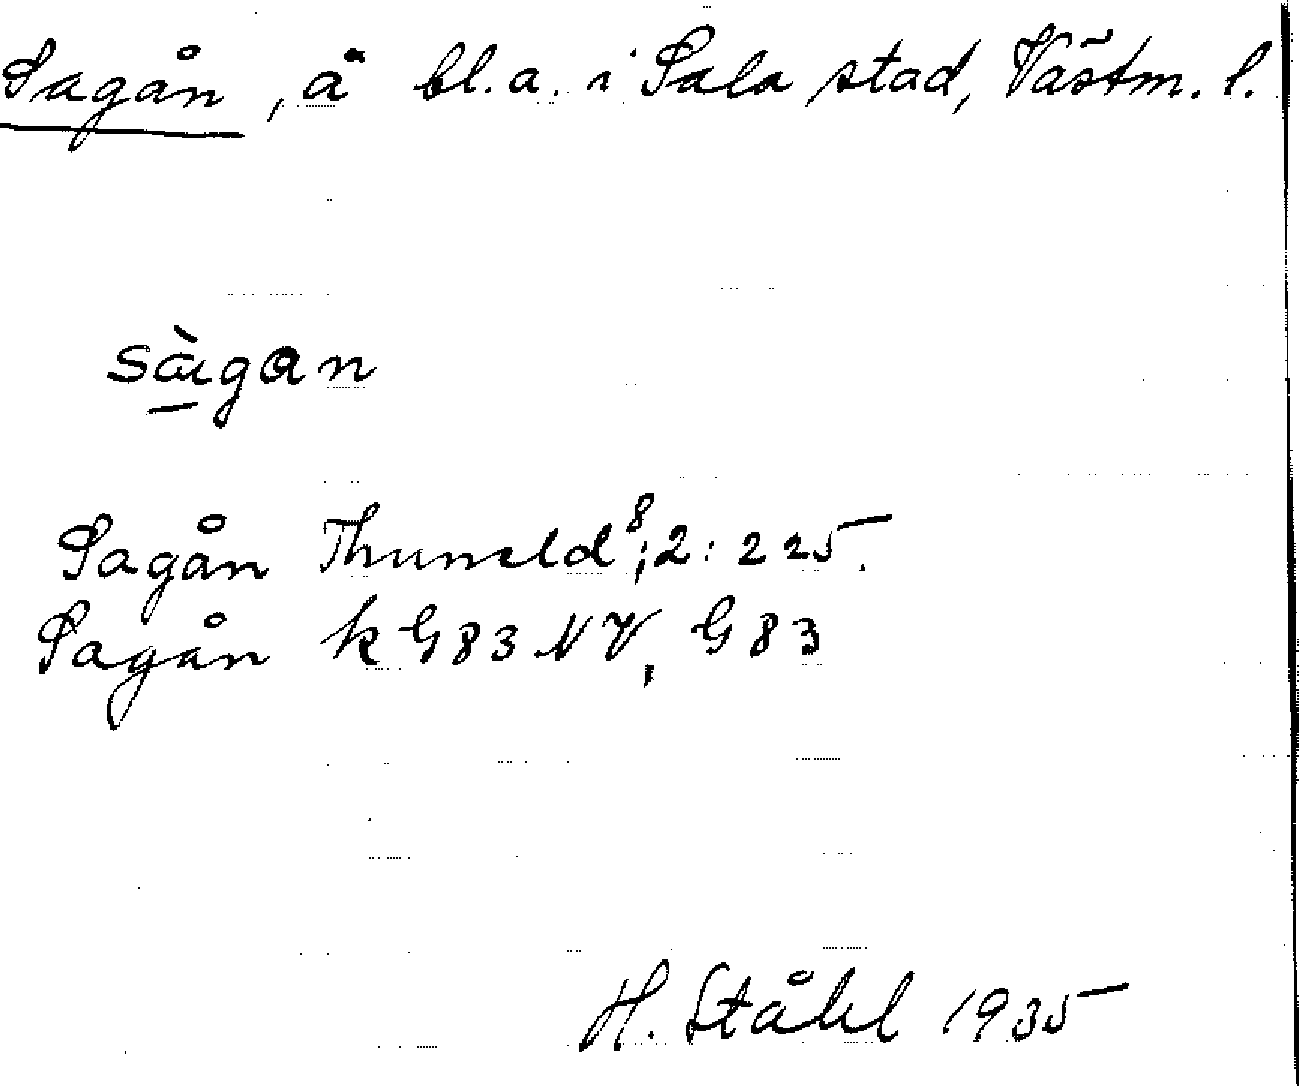 Sagån, å bl.a. i Sala stad, Västm. l.
sàgan
Sagån Thuneld⁸; 2: 225.
Sagån k G83 NV, G83
H. Ståhl 1935